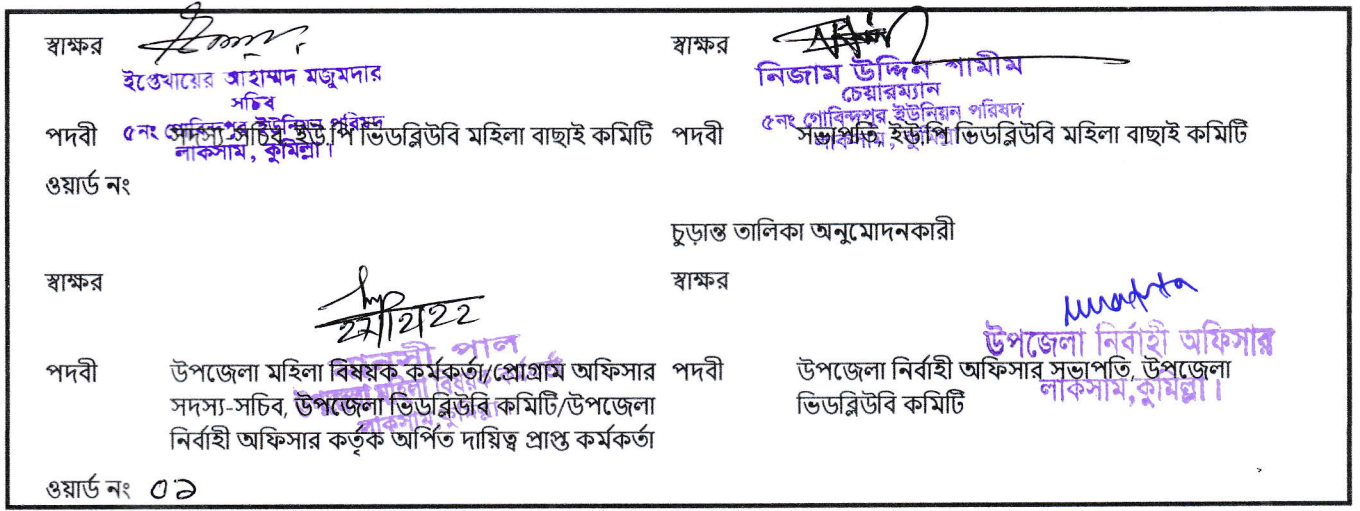 স্বাক্ষর
ইফতেখায়ের আহাম্মদ মজুমদার
সচিব
৫নং গোবিন্দপুর ইউনিয়ন পরিষদ
লাকসাম, কুমিল্লা।
পদবী সদস্য-সচিব, ইউ.পি ভিডব্লিউবি মহিলা বাছাই কমিটি
ওয়ার্ড নং
স্বাক্ষর
নিজাম উদ্দিন শামীম
চেয়ারম্যান
৫নং গোবিন্দপুর ইউনিয়ন পরিষদ
লাকসাম, কুমিল্লা
পদবী সভাপতি, ইউ.পি ভিডব্লিউবি মহিলা বাছাই কমিটি
চুড়ান্ত তালিকা অনুমোদনকারী
স্বাক্ষর
পাল
পদবী উপজেলা মহিলা বিষয়ক কর্মকর্তা/প্রোগ্রাম অফিসার
সদস্য-সচিব, উপজেলা ভিডব্লিউবি কমিটি/উপজেলা
নির্বাহী অফিসার কর্তৃক অর্পিত দায়িত্ব প্রাপ্ত কর্মকর্তা
ওয়ার্ড নং ০১
স্বাক্ষর
উপজেলা নির্বাহী অফিসার
লাকসাম, কুমিল্লা।
পদবী উপজেলা নির্বাহী অফিসার সভাপতি, উপজেলা
ভিডব্লিউবি কমিটি